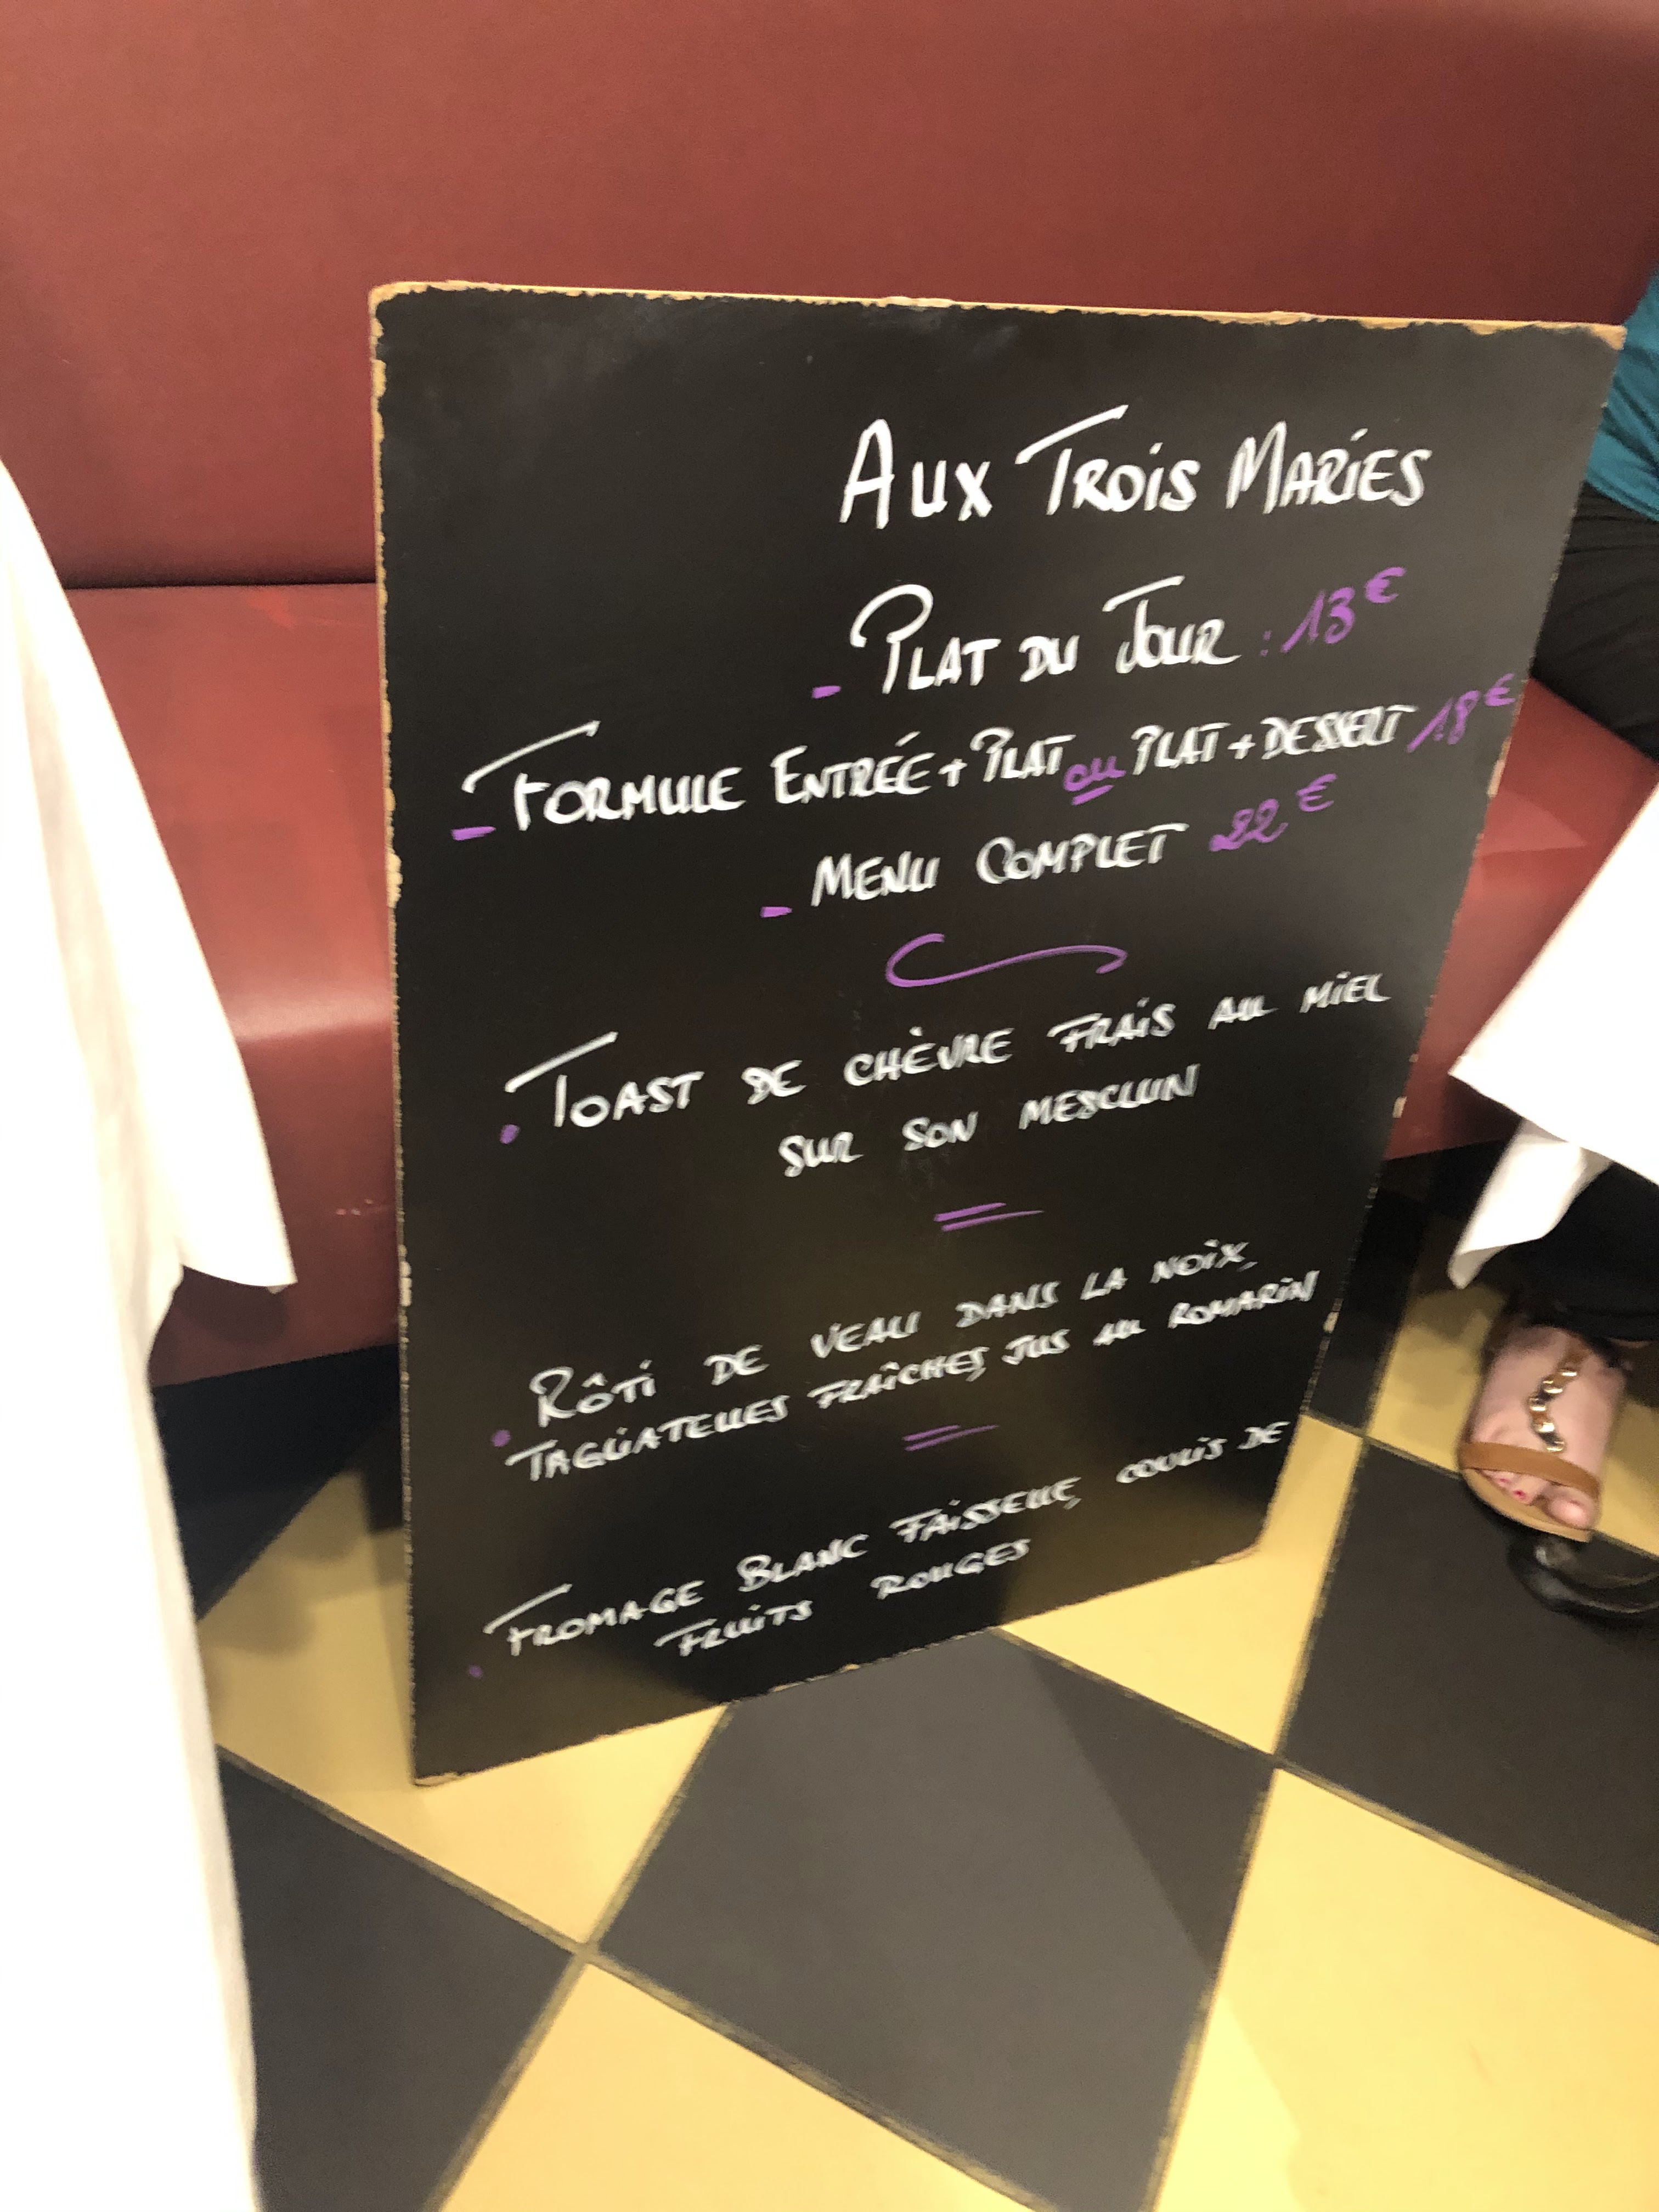 Aux Trois Maries
- Plat du Jour : 13€
- Formule Entrée + Plat ou Plat + Dessert 18€
- Menu Complet 22€
• Toast de chèvre frais au miel
sur son mesclun
• Rôti de veau dans la noix,
Tagliatelles fraîches, jus au romarin
• Fromage Blanc Faisselle, coulis de
fruits rouges